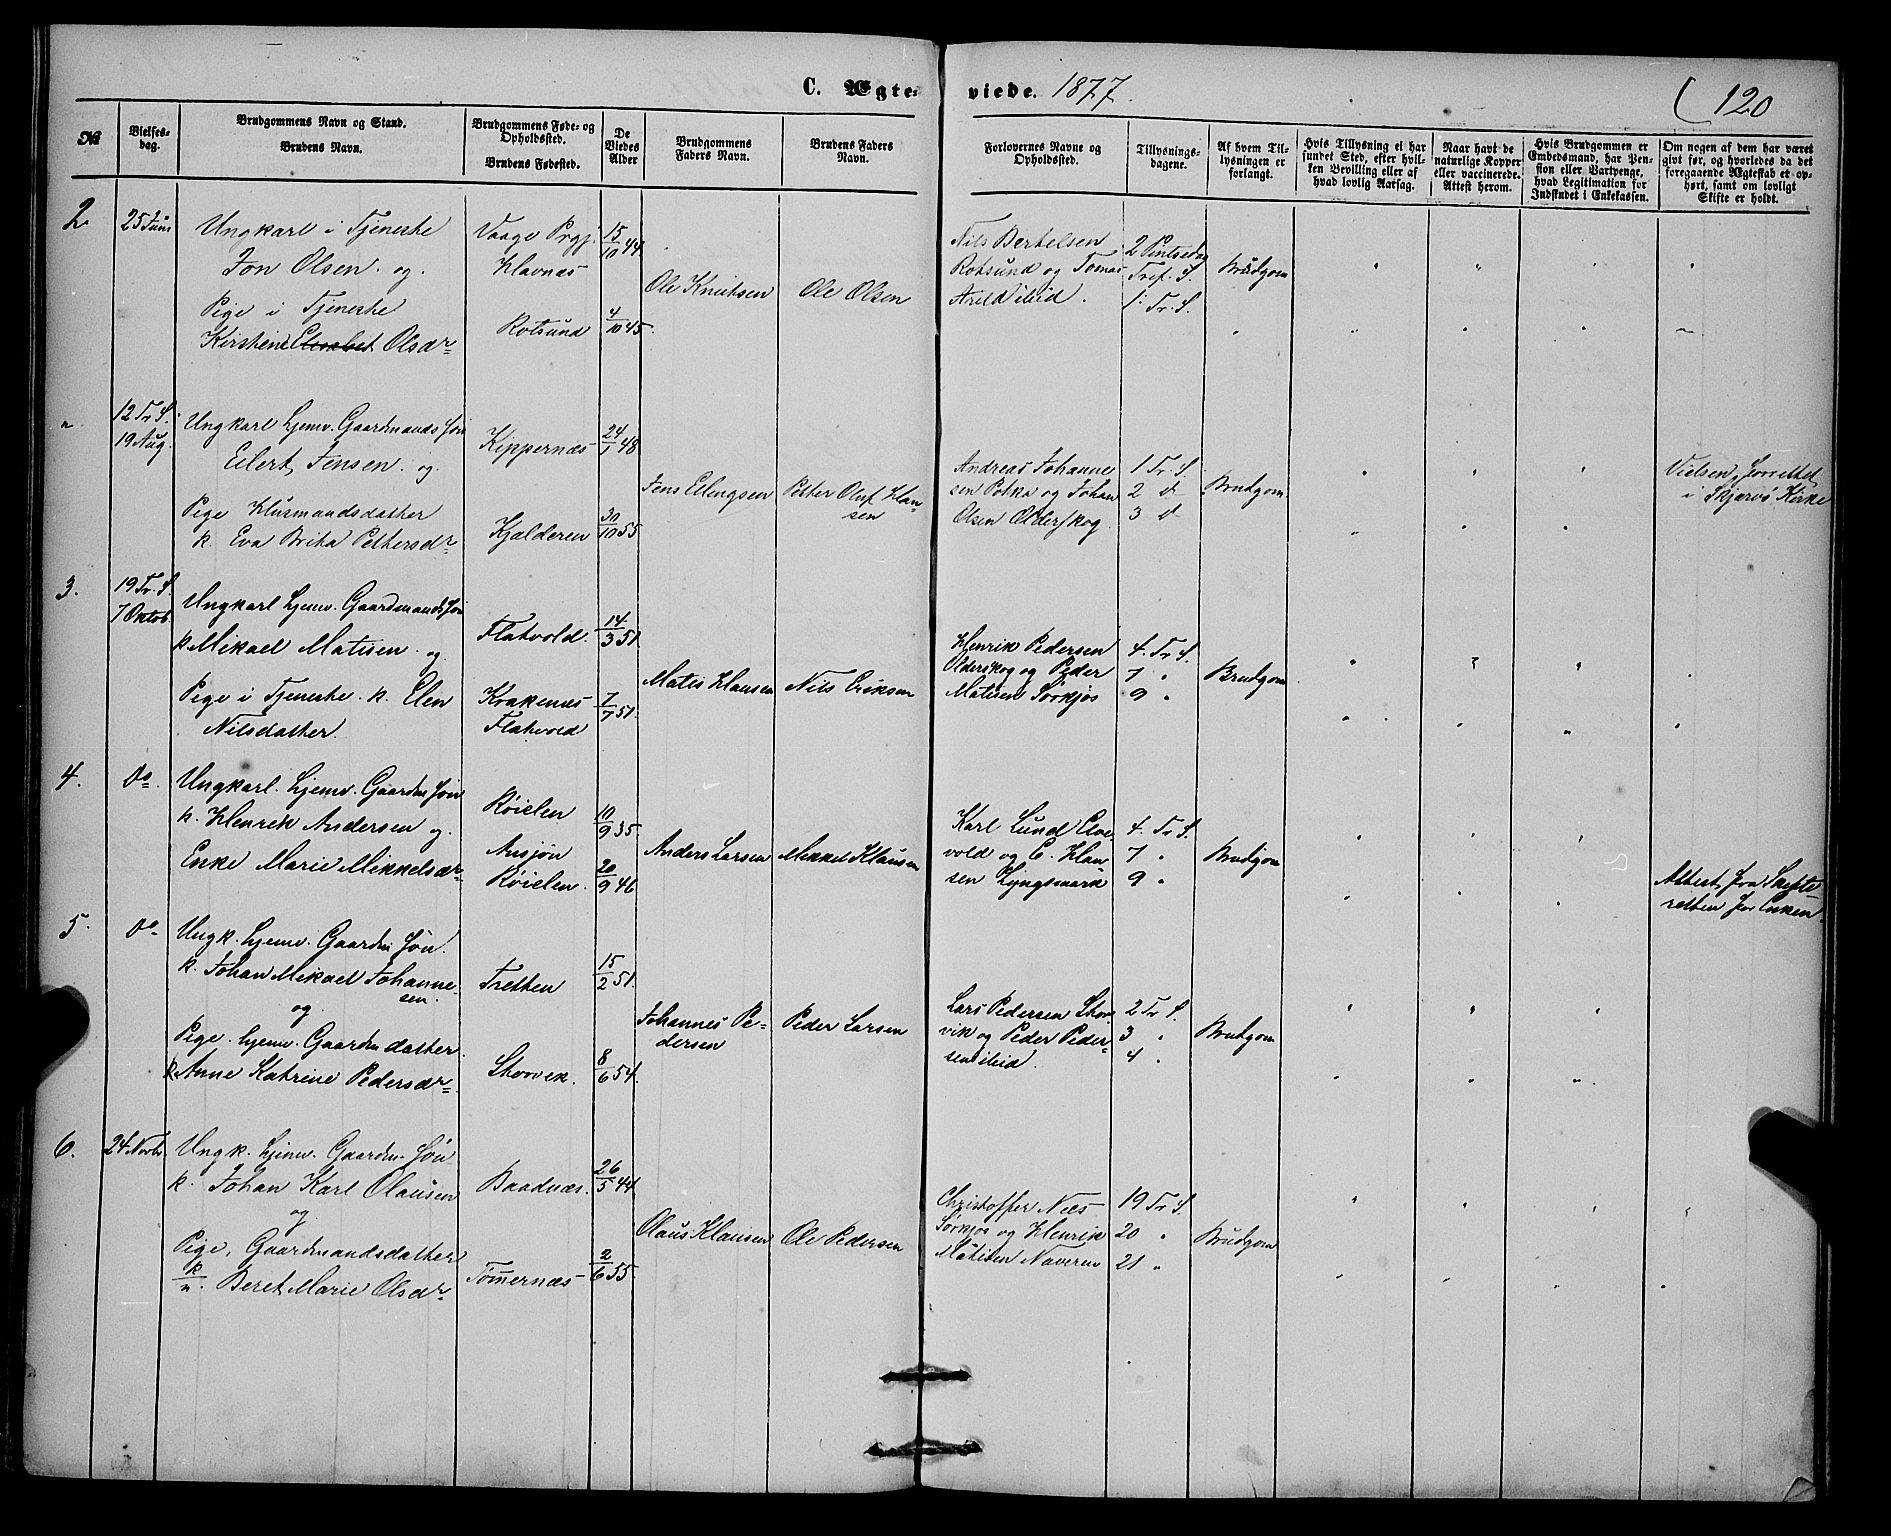 C. Ægteviede. 1877.
120
№
Vielsesdag.
Brudgommens Navn og Stand.
Brudens Navn.
Brudgommens Føde- og Opholdssted.
Brudens Fødested.
De Viedes Alder
Brudgommens Faders Navn.
Brudens Faders Navn.
Forlovernes Navne og Opholdssted.
Tillysningsdagene.
Af hvem Tillysningen er forlangt.
Hvis Tillysning ei har fundet Sted, efter hvilken Bevilling eller af hvad lovlig Aarsag.
Naar havt de naturlige Kopper eller vaccinerede. Attest herom.
Hvis Brudgommen er Embedsmand, har Pension eller Vartpenge, hvad Legitimation for Indskudet i Enkekassen.
Om nogen af dem har været givt før, og hvorledes da det foregaaende Ægteskab et ophørt, samt om lovligt Skifte er holdt.
2
25 Juni
Ungkarl i Tjeneste
Jon Olsen og
Pige i Tjeneste
Kirstine Elisabet Olsdr
Vaage Prgj.
Havnæs
Rotsund
15/10 44
4/10 45.
Ole Knutsen
Ole Olsen
Nils Bertelsen
Rotsund og Tomas
Arild ibid.
2 Pintsedag
Tref. S.
1 Tr. S.
Brudgom
12 Tr S.
19 Aug.
Ungkarl hjemv. Gaardmands Søn
Eilert Jensen og
Pige Husmandsdatter
k. Eva Brita Pettersdr
Kippernæs
Kjælderen
24/1 48
30/10 55
Jens Eilengsen
Petter Oluf Hansen
Andreas Johannesen
Potka og Johan
Olsen Olderskog.
1 Tr. S.
2 d
3 d
Brudgom
Vielsen forrettet
i Skjærvö Kirke
3.
19 Tr. S.
7 Oktob.
Ungkarl hjemv. Gaardmands Søn
k. Mikael Matisen og
Pige i Tjeneste k. Elen
Nilsdatter.
Flatvold.
Krakenes
Flatvold
14/3 51.
7/7 51.
Matis Hansen
Nils Eriksen
Henrik Pedersen
Olderskog og Peder
Matisen Sørkjos
4. Tr S.
7 "
9 "
Brudgom
4.
Do.
Ungkarl. hjemv. Gaardm Søn
k. Henrik Andersen og
Enke Marie Mikkelsdr
Röielen
Ansjön
Röielen.
10/9 35
20/9 46
Anders Larsen
Mikkel Klausen
Karl Lund Elvevold
og C. Hansen
Lyngsmark
4. Tr S.
7 "
9 "
Brudgom
Attest fra Skifteretten
for Enken.
5.
Do
Ungk. hjemv. Gaardm Søn.
k. Johan Mikael Johannesen.
og
Pige. hjemv. Gaardm datter
k. Anne Katrine Pedersdr
Tretten
Storvik.
15/2 51.
8/6 54.
Johannes Pedersen
Peder Larsen
Lars Pedersen Storvik
og Peder Pedersen
ibid.
2 Tr S.
3 "
4 "
Brudgom
6.
24 Novbr.
Ungk. hjemv. Gaardm. Søn
k. Johan Karl Olausen
og
Pige, Gaardmandsdatter
k/n. Beret Marie Olsdr
Baadnæs.
Tømernæs
26/5 44
2/6 55.
Olaus Klausen
Ole Pedersen
Christoffer Nils
Sørkjos og Henrik
Matisen Naveren
19 Tr S.
20 "
21 "
Brudgom